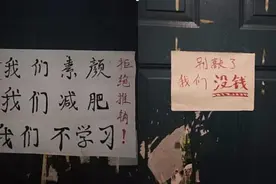 我们素颜
我们减肥
我们不学习
拒绝推销！
别敲了
我们没钱